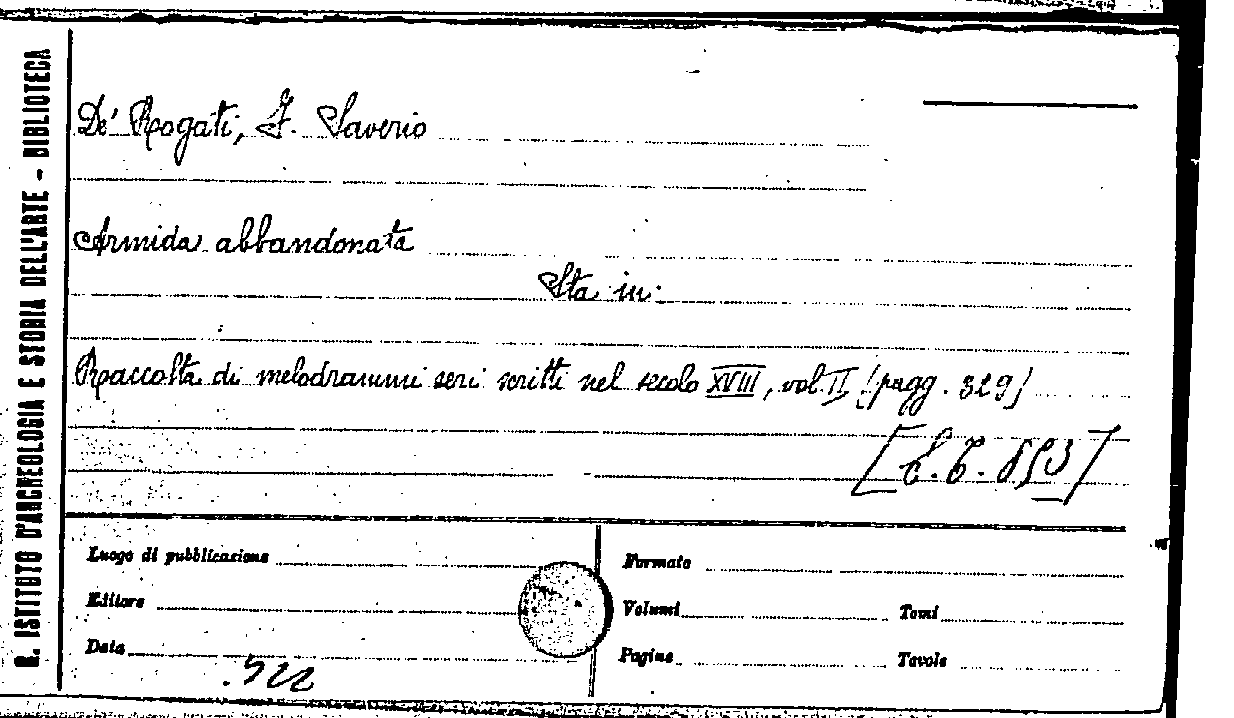 R. ISTITUTO D'ARCHEOLOGIA E STORIA DELL'ARTE - BIBLIOTECA
De' Rogati, F. Saverio
Armida abbandonata
Sta in:
Raccolta di melodrammi seri scritti nel secolo XVIII, vol. II (pagg. 329)
Luogo di pubblicazione
Editore
Data
Formato
Volumi
Tomi
Pagine
Tavole